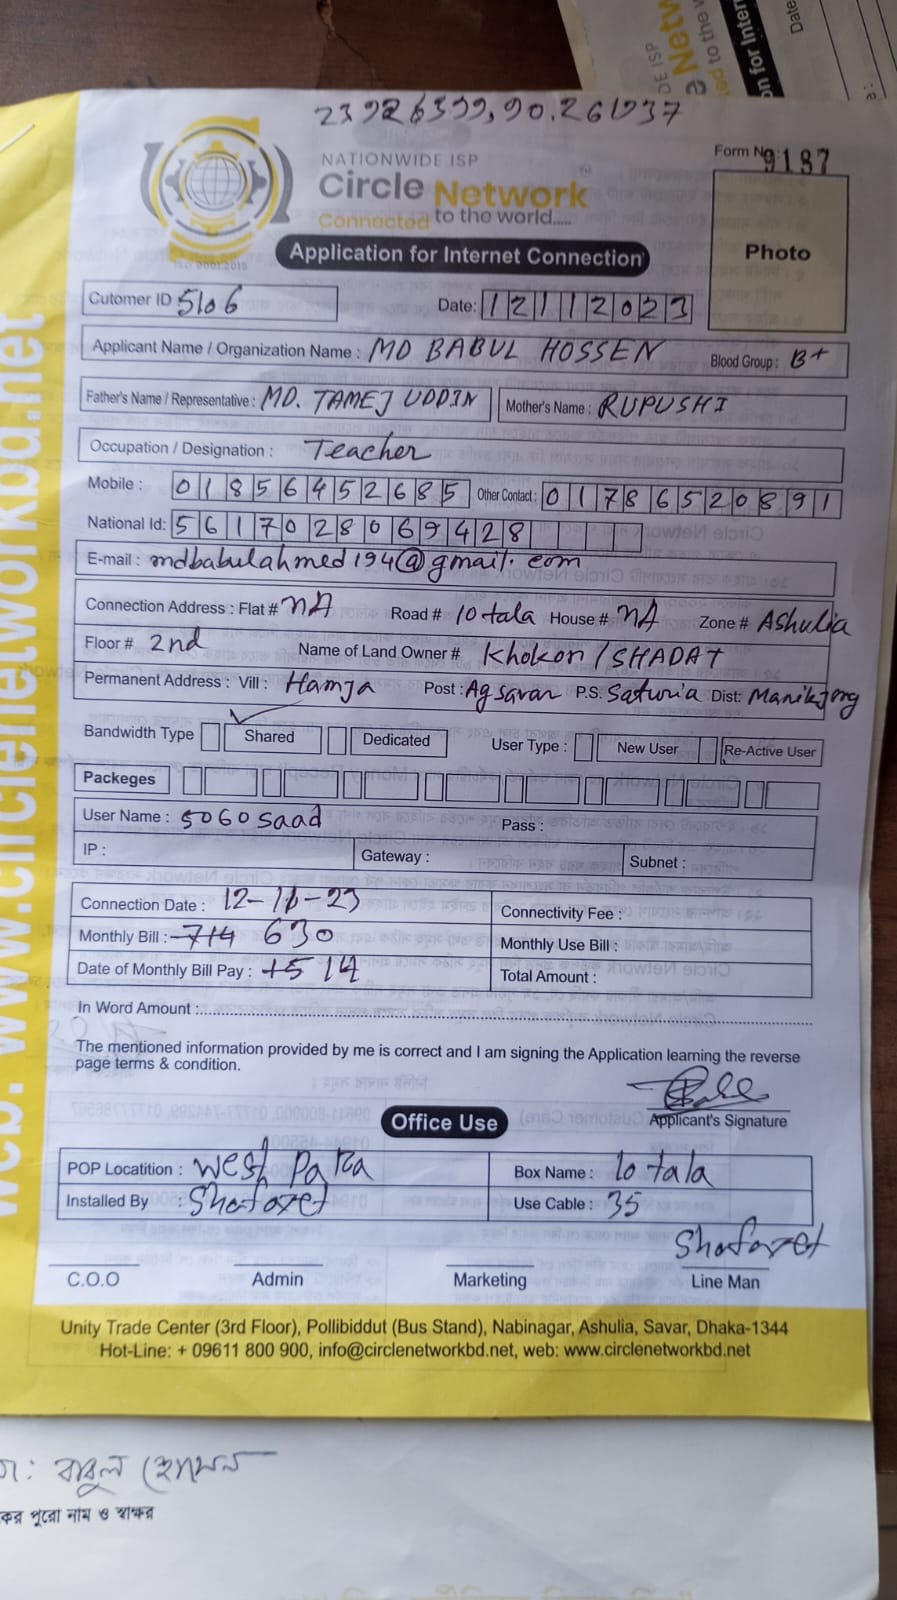 23926399,90.261037
NATIONWIDE ISP
Form No: 9187
Circle Network
Connected to the world.....
ISO 9001:2015
Application for Internet Connection
Photo
Cutomer ID 5106
Date: 12112023
Applicant Name / Organization Name : MD BABUL HOSSEN Blood Group : B+
Father's Name / Representative : MD. TAMEJ UDDIN Mother's Name : RUPUSHI
Occupation / Designation : Teacher
Mobile : 01856452685 Other Contact : 01786520891
National Id: 5617028069428
E-mail : mdbabulahmed194@gmail.com
Connection Address : Flat # NA Road # 10 tala House # NA Zone # Ashulia
Floor # 2nd Name of Land Owner # Khokon / SHADAT
Permanent Address : Vill : Hamja Post : Ag savar P.S. Saturia Dist: Manikjong
Bandwidth Type Shared Dedicated User Type : New User Re-Active User
Packeges
User Name : 5060saad Pass :
IP : Gateway : Subnet :
Connection Date : 12-11-23 Connectivity Fee :
Monthly Bill : 714 630 Monthly Use Bill :
Date of Monthly Bill Pay : 15 14 Total Amount :
In Word Amount :
The mentioned information provided by me is correct and I am signing the Application learning the reverse
page terms & condition.
Applicant's Signature
Office Use
POP Locatition : West Para Box Name : 10 tala
Installed By : Shafaxet Use Cable : 35
Shafaxet
C.O.O Admin Marketing Line Man
Unity Trade Center (3rd Floor), Pollibiddut (Bus Stand), Nabinagar, Ashulia, Savar, Dhaka-1344
Hot-Line: + 09611 800 900, info@circlenetworkbd.net, web: www.circlenetworkbd.net
web: www.circlenetworkbd.net
বাবুল হোসেন
পুরো নাম ও স্বাক্ষর